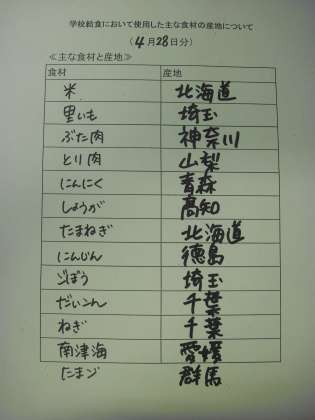 学校給食において使用した主な食材の産地について
（4月28日分）
≪主な食材と産地≫
食材 産地
米 北海道
里いも 埼玉
ぶた肉 神奈川
とり肉 山梨
にんにく 青森
しょうが 高知
たまねぎ 北海道
にんじん 徳島
ごぼう 埼玉
だいこん 千葉
ねぎ 千葉
南津海 愛媛
たまご 群馬